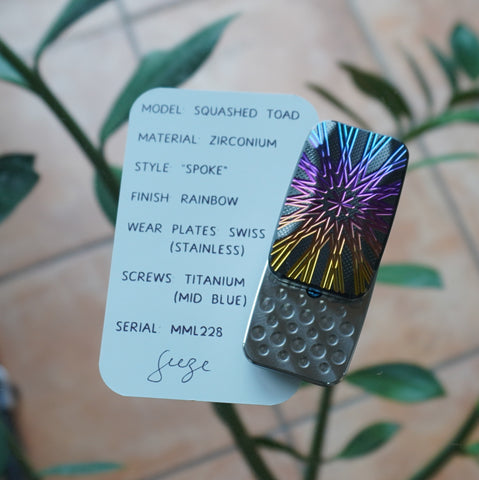 MODEL: SQUASHED TOAD
MATERIAL: ZIRCONIUM
STYLE: "SPOKE"
FINISH: RAINBOW
WEAR PLATES: SWISS
(STAINLESS)
SCREWS: TITANIUM
(MID BLUE)
SERIAL: MML228